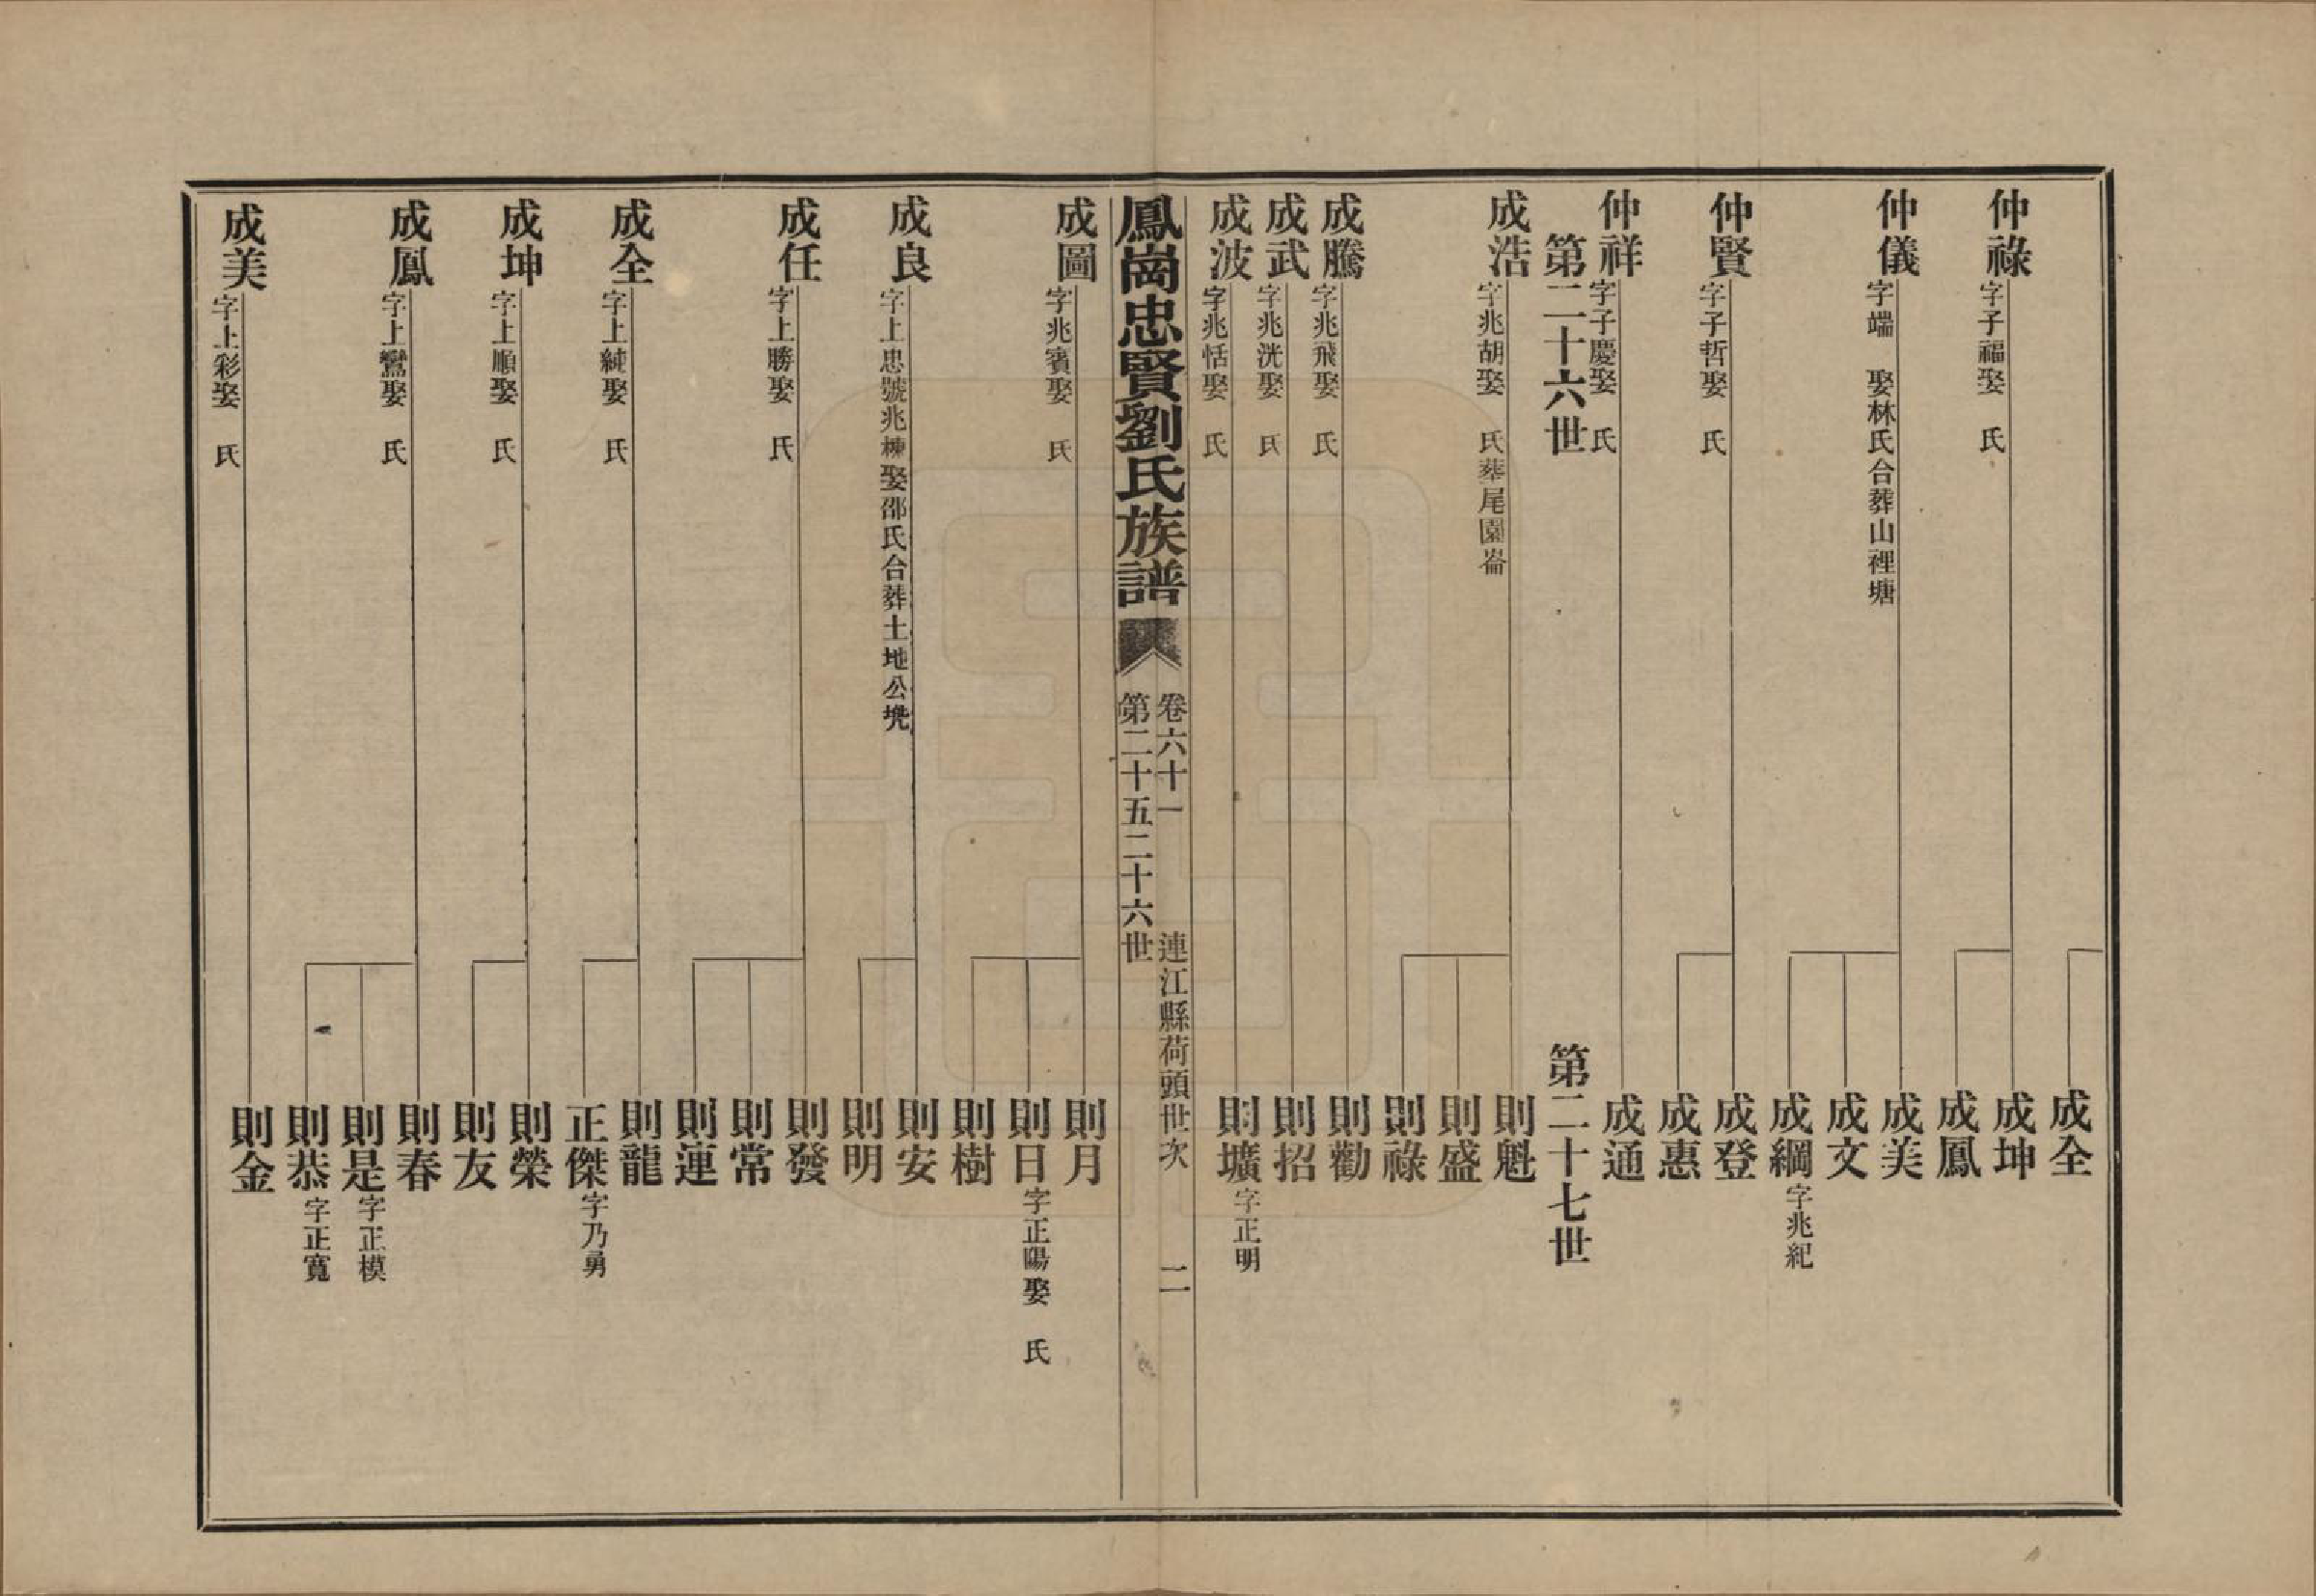 成全
仲祿字子福娶　氏
成坤
成鳳
仲儀字端　娶林氏合葬山裡塘
成美
成文
成綱字兆紀
仲賢字子哲娶　氏
成登
成惠
仲祥字子慶娶　氏
成通
第二十六世
第二十七世
成浩字兆胡娶　氏葬尾園崙
則魁
則盛
則祿
成騰字兆飛娶　氏
則勸
成武字兆洸娶　氏
則招
成波字兆恬娶　氏
則壙字正明
鳳崗忠賢劉氏族譜
卷六十一　連江縣荷頭世次　二
第二十五二十六世
成圖字兆賓娶　氏
則月
則日字正陽娶　氏
則樹
成良字上忠號兆棟娶邵氏合葬土地公堍
則安
則明
成任字上勝娶　氏
則發
則常
則連
成全字上純娶　氏
則龍
正傑字乃勇
成坤字上順娶　氏
則榮
則友
成鳳字上鸞娶　氏
則春
則是字正模
則恭字正寬
成美字上彩娶　氏
則金